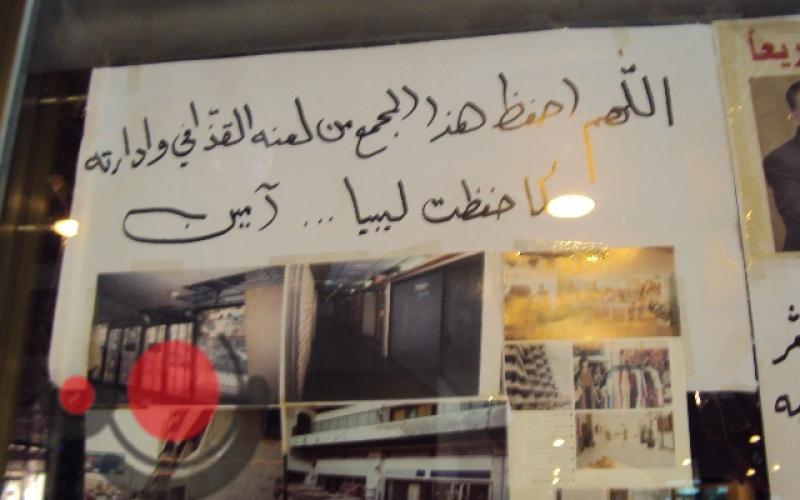 اللّهم احفظ هذا المجمع من لعنه القذّافي وادارته
كما حفظت ليبيا ... آمين
يعاً